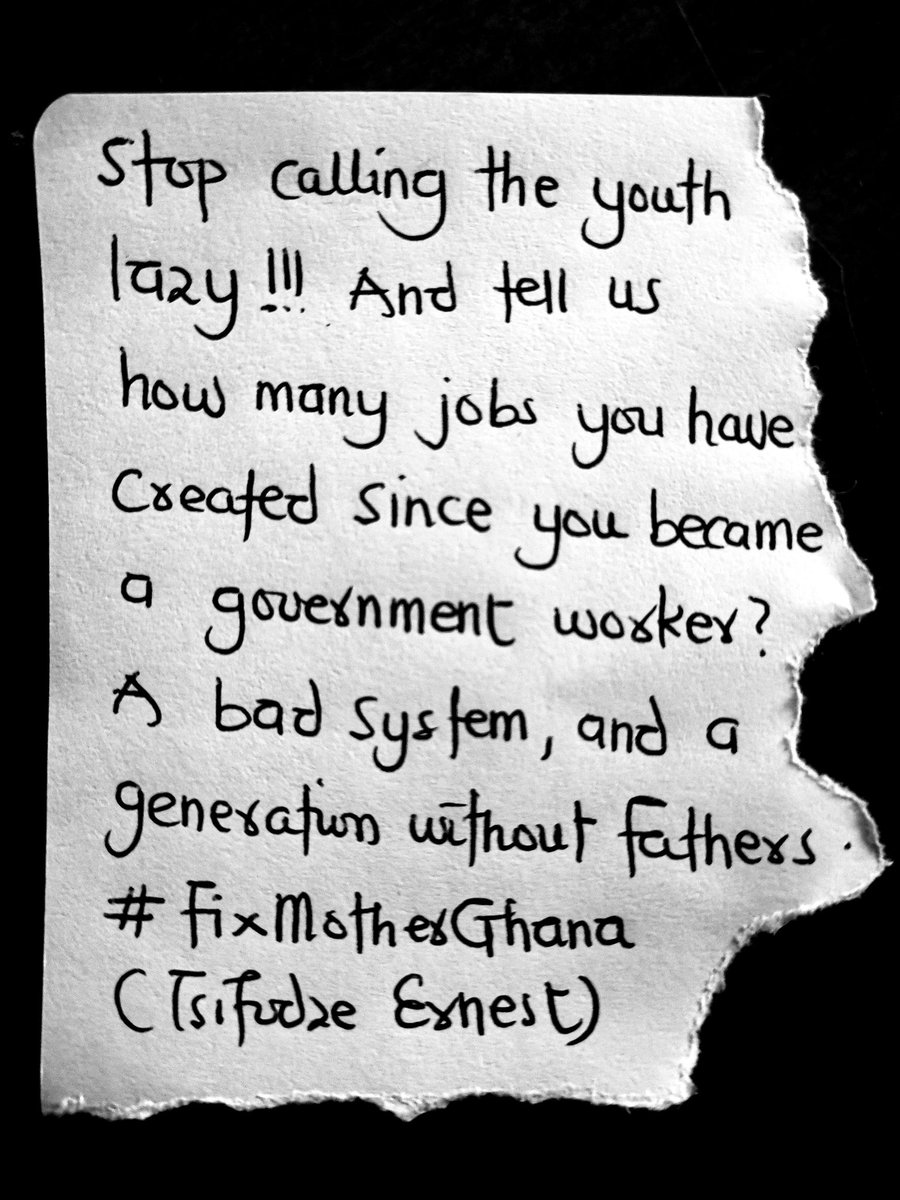 Stop calling the youth
lazy!!! And tell us
how many jobs you have
Created since you became
a government worker?
A bad system, and a
generation without fathers.
# FixMotherGhana
(Tsifodze Ernest)